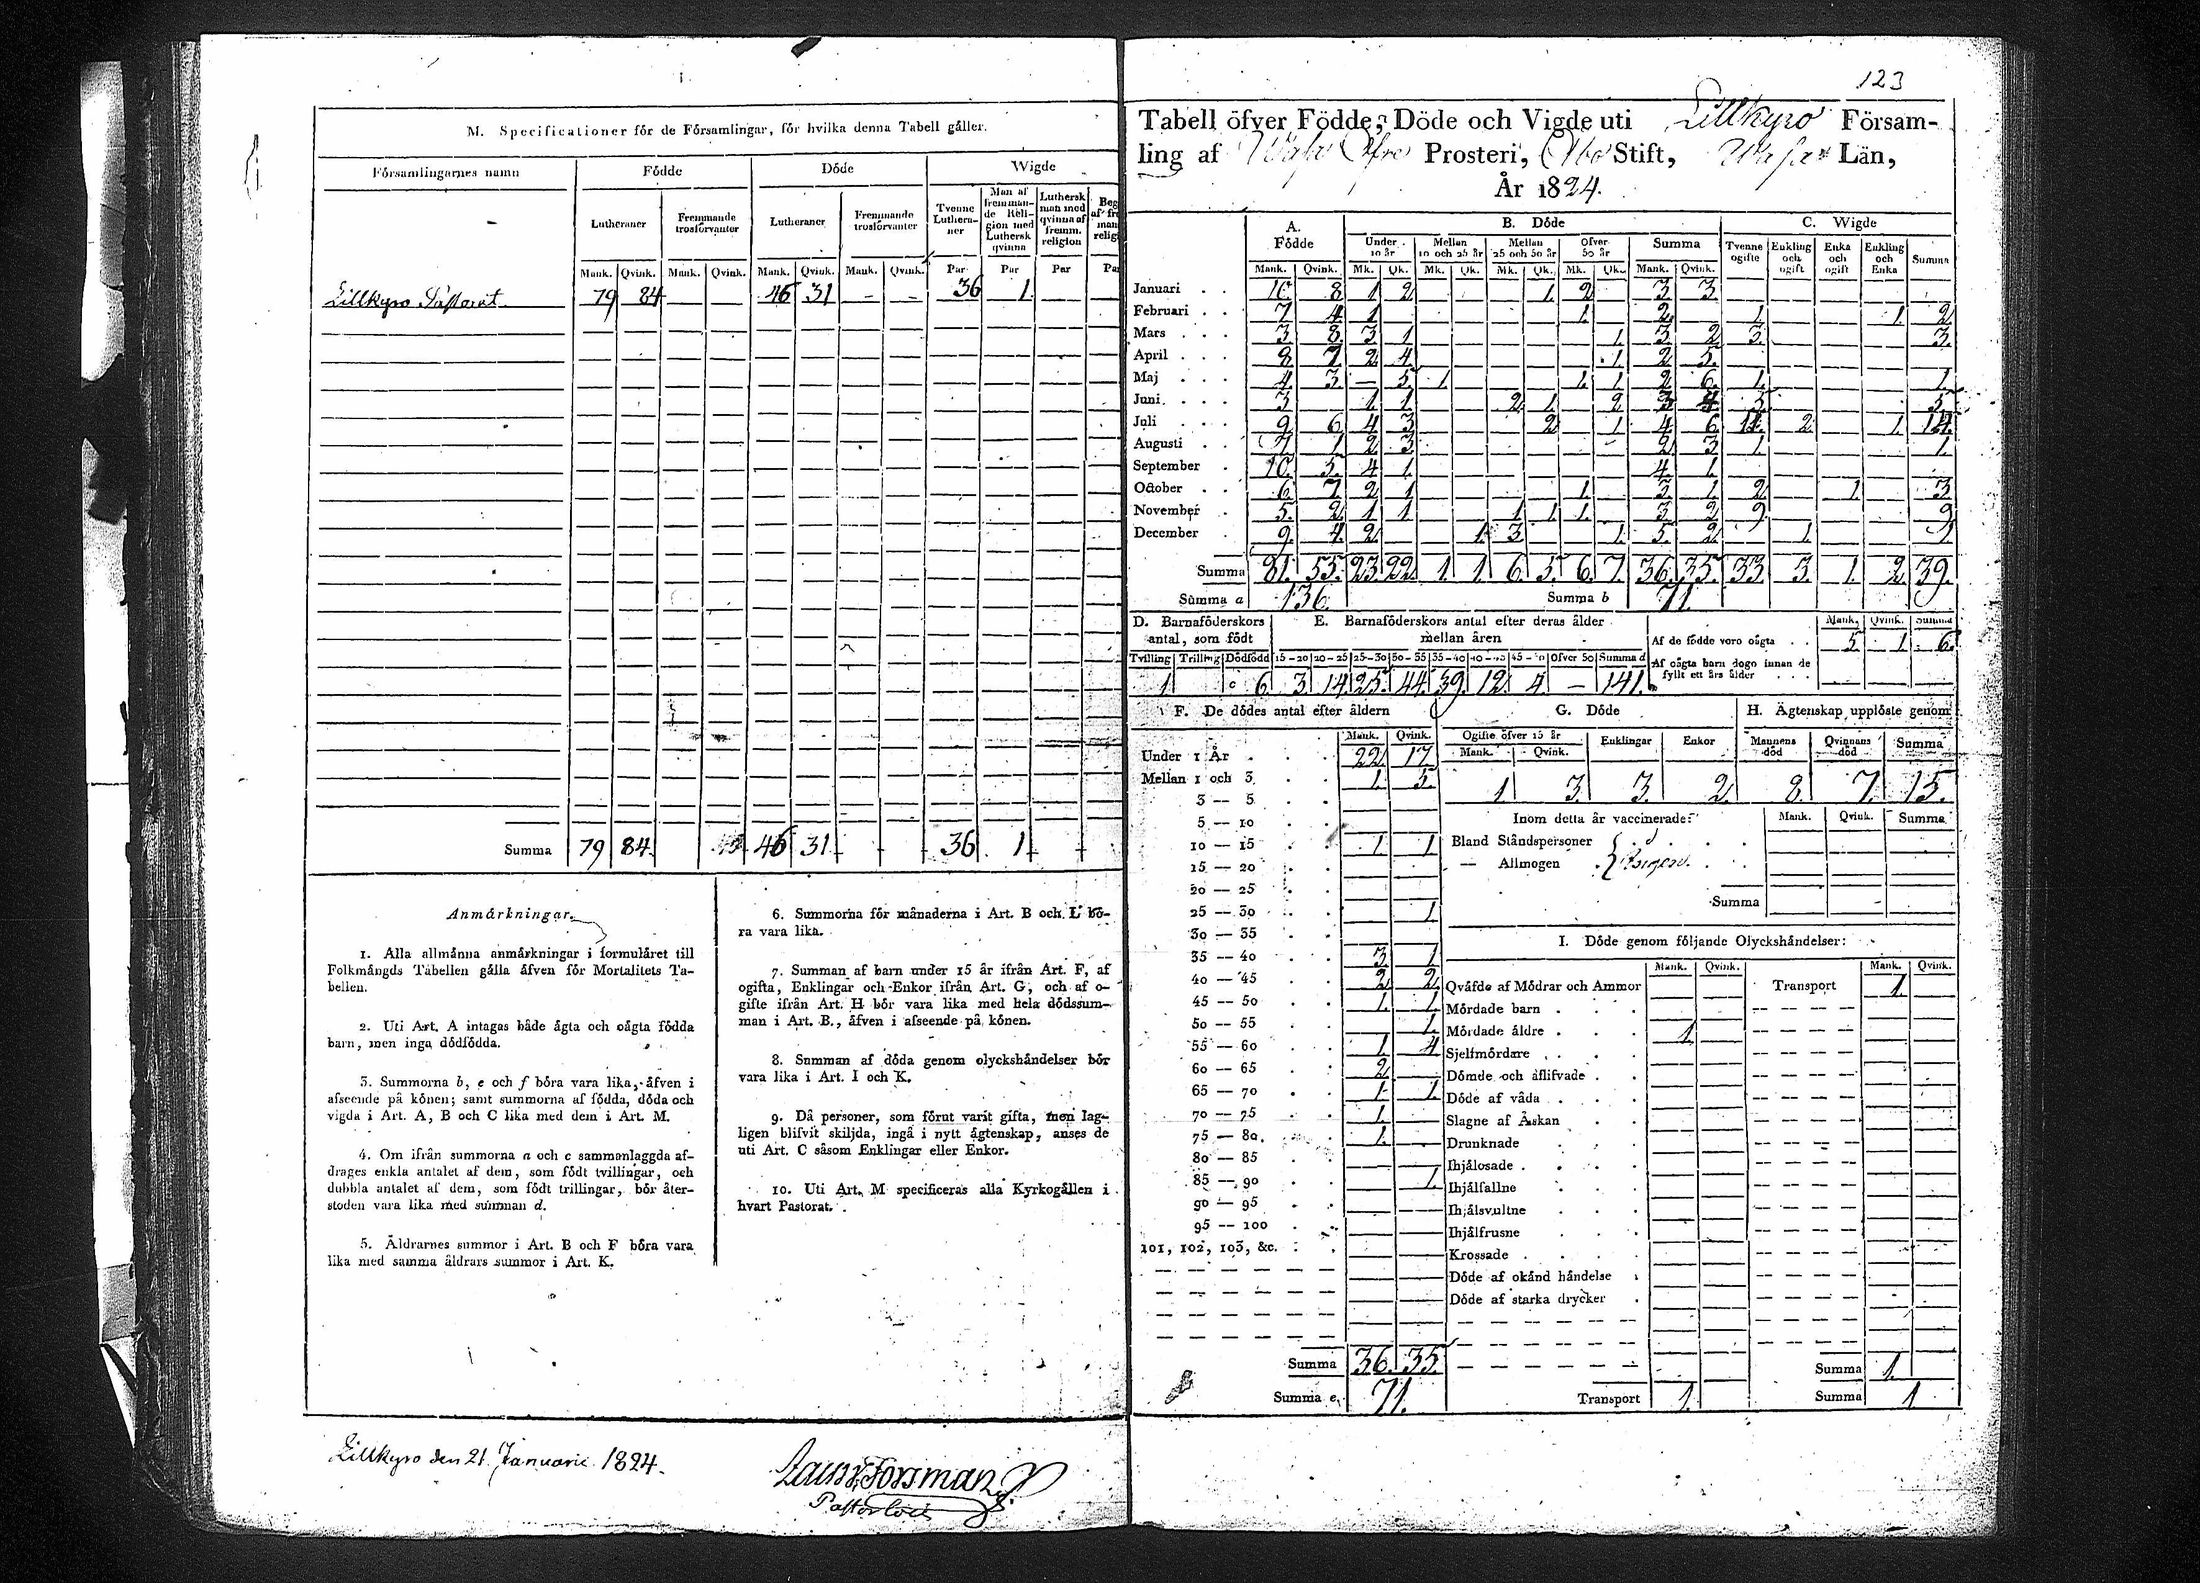 M. Specificationer för de Församlingar, för hvilka denna Tabell gäller.
Församlingarnes namn | Födde | Döde | Wigde
Lutheraner | Fremmande trosförvanter | Lutheraner | Fremmande trosförvanter | Tvenne Lutheraner | Man af fremmande Religion med Luthersk qvinna | Luthersk man med qvinna af fremm. religion
Mank. Qvink. Mank. Qvink. Mank. Qvink. Mank. Qvink. Par Par Par
Lillkyro Pastorat 79 84 46 31 - - 36 1
Summa 79 84 46 31 - - 36 1
Anmärkningar.
1. Alla allmänna anmärkningar i formuläret till
Folkmängds Tabellen gälla äfven för Mortalitets Ta-
bellen.
2. Uti Art. A intagas både ägta och oägta födda
barn, men inga dödfödda.
3. Summorna b, e och f böra vara lika, äfven i
afseende på könen; samt summorna af födda, döda och
vigda i Art. A, B och C lika med dem i Art. M.
4. Om ifrån summorna a och c sammanlaggda af-
drages enkla antalet af dem, som födt tvillingar, och
dubbla antalet af dem, som födt trillingar, bör åter-
stoden vara lika med summan d.
5. Åldrarnes summor i Art. B och F böra vara
lika med samma åldrars summor i Art. K.
6. Summorna för månaderna i Art. B och L bö-
ra vara lika.
7. Summan af barn under 15 år ifrån Art. F, af
ogifta, Enklingar och Enkor ifrån Art. G, och af o-
gifte ifrån Art. H bör vara lika med hela dödssum-
man i Art. B., äfven i afseende på könen.
8. Summan af döda genom olyckshändelser bör
vara lika i Art. I och K.
9. Då personer, som förut varit gifta, men lag-
ligen blifvit skiljda, ingå i nytt ägtenskap, anses de
uti Art. C såsom Enklingar eller Enkor.
10. Uti Art. M specificeras alla Kyrkogällen i
hvart Pastorat.
Lillkyro den 21 Januarii 1824.
Forsman
Pastor loci
123
Tabell öfver Födde, Döde och Vigde uti Lillkyro Församling
af Wasa Öfre Prosteri, Åbo Stift, Wasa Län,
År 1824.
A. Födde | B. Döde | C. Wigde
Under 10 år | Mellan 10 och 25 år | Mellan 25 och 50 år | Öfver 50 år | Summa | Tvenne ogifte | Enkling och ogift | Enka och ogift | Enkling och Enka | Summa
Mank. Qvink. Mk. Qk. Mk. Qk. Mk. Qk. Mk. Qk. Mank. Qvink.
Januari 10 8 1 2 1 2 3 3
Februari 7 4 1 1 2 1 1 2
Mars 3 8 3 1 1 3 2 3 3
April 8 7 2 4 1 2 5
Maj 4 3 - 5 1 1 1 2 6 1 1
Juni 3 1 1 2 1 2 3 4 5 5
Juli 9 6 4 3 2 1 4 6 11 2 1 14
Augusti 7 1 2 3 2 3 1 1
September 10 5 4 1 4 1
October 6 7 2 1 1 3 1 2 1 3
November 5 2 1 1 1 1 1 3 2 9 9
December 9 4 2 1 3 1 5 2 1 1
Summa 81 55 23 22 1 1 6 5 6 7 36 35 33 3 1 2 39
Summa a 136 Summa b 71
D. Barnaföderskors antal, som födt
Tvilling | Trilling | Dödfödd
1 c 6
E. Barnaföderskors antal efter deras ålder mellan åren
15-20 20-25 25-30 30-35 35-40 40-45 45-50 Öfver 50 Summa d
3 14 25 44 39 12 4 - 141
Mank. Qvink. Summa
Af de födde voro oägta 5 1 6
Af oägta barn dogo innan de
fyllt ett års ålder
F. De dödes antal efter åldern
Mank. Qvink.
Under 1 År 22 17
Mellan 1 och 3 1 5
3 — 5
5 — 10
10 — 15 1 1
15 — 20
20 — 25
25 — 30 1
30 — 35
35 — 40 3 1
40 — 45 2 2
45 — 50 1 1
50 — 55 1
55 — 60 1 4
60 — 65 2
65 — 70 1 1
70 — 75 1
75 — 80 1
80 — 85
85 — 90 1
90 — 95
95 — 100
101, 102, 103, &c.
Summa 36 35
Summa e 71
G. Döde
Ogifte öfver 15 år | Enklingar | Enkor
Mank. Qvink.
1 3 3 2
H. Ägtenskap upplöste genom
Mannens död | Qvinnans död | Summa
8 7 15
Inom detta år vaccinerade: Mank. Qvink. Summa
Bland Ståndspersoner
— Allmogen
Summa
I. Döde genom följande Olyckshändelser:
Mank. Qvink. Mank. Qvink.
Qväfde af Mödrar och Ammor
Mördade barn
Mördade äldre 1
Sjelfmördare
Dömde och aflifvade
Döde af våda
Slagne af Åskan
Drunknade
Ihjälosade
Ihjälfallne
Ihjälsvultne
Ihjälfrusne
Krossade
Döde af okänd händelse
Döde af starka drycker
Transport 1
Transport 1
Summa 1
Summa 1